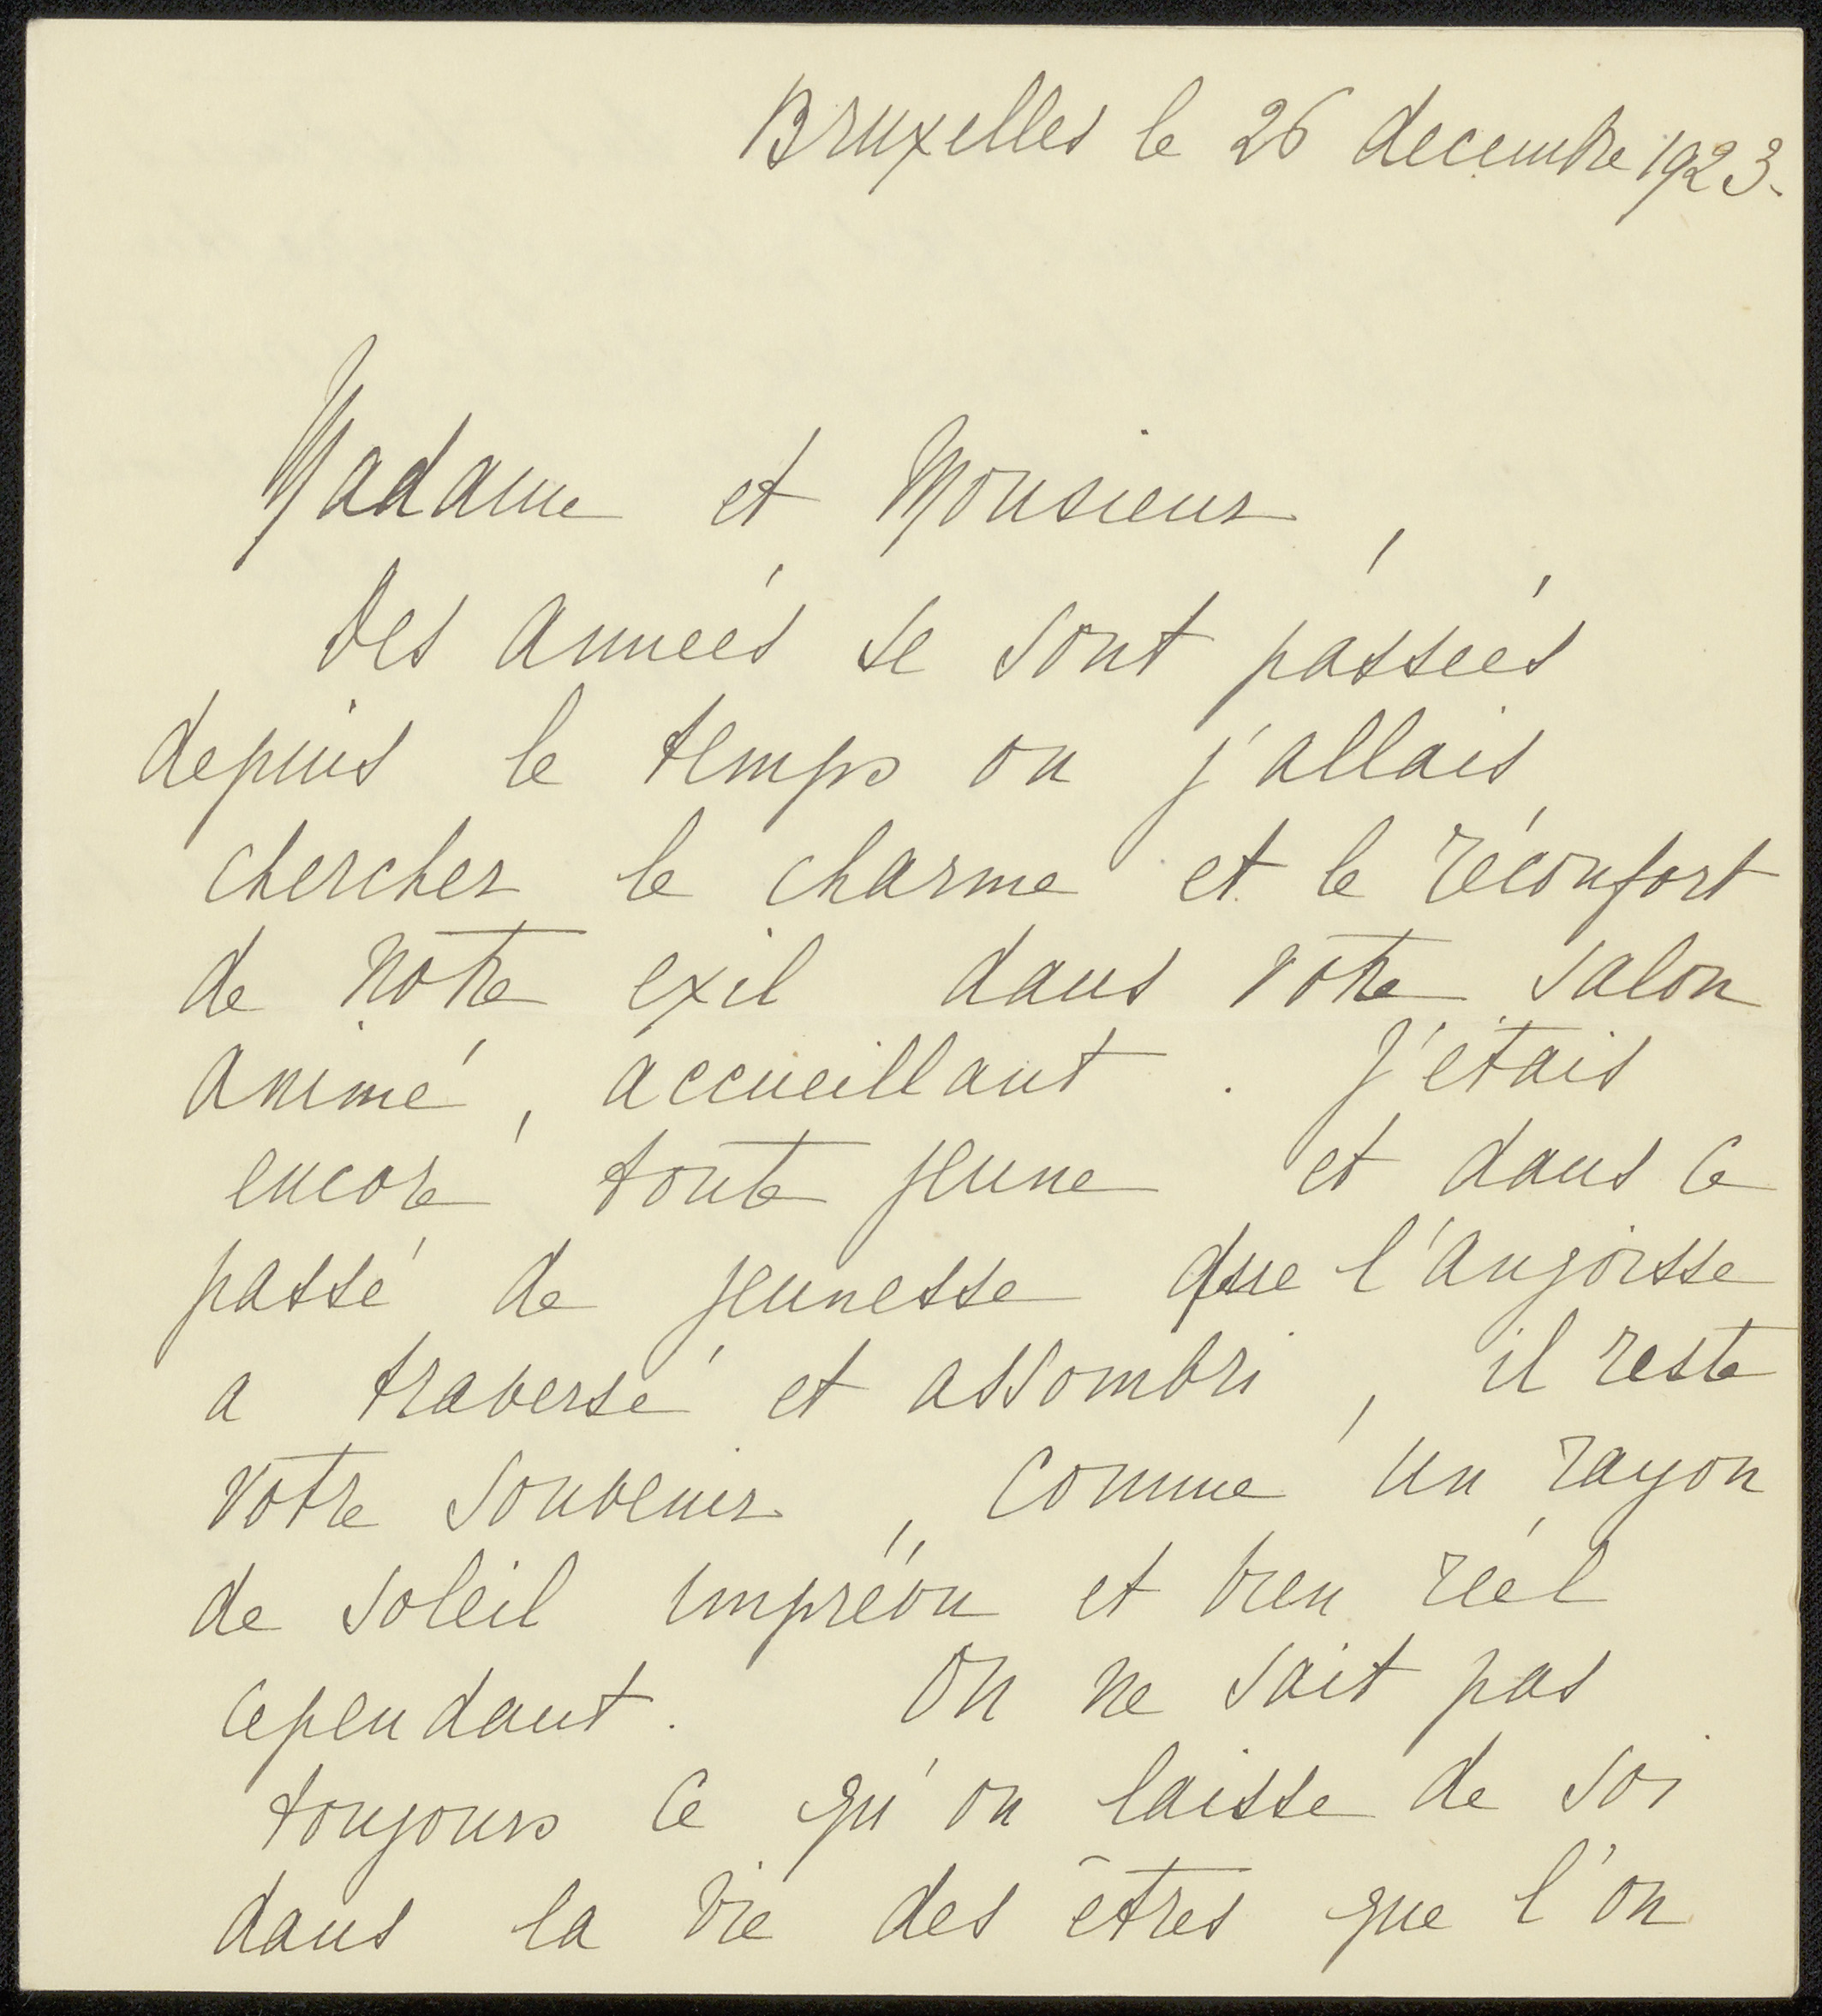 Bruxelles le 26 decembre 1923.
Madame et Monsieur,
Des années se sont passées
depuis le temps ou j'allais
chercher le charme et le réconfort
de notre exil dans votre salon
animé, accueillant. J'étais
encore toute jeune et dans ce
passé de jeunesse que l'angoisse
a traversé et assombri, il reste
votre souvenir, comme un rayon
de soleil imprévu et bien réel
cependant. On ne sait pas
toujours ce qu'on laisse de soi
dans la vie des êtres que l'on